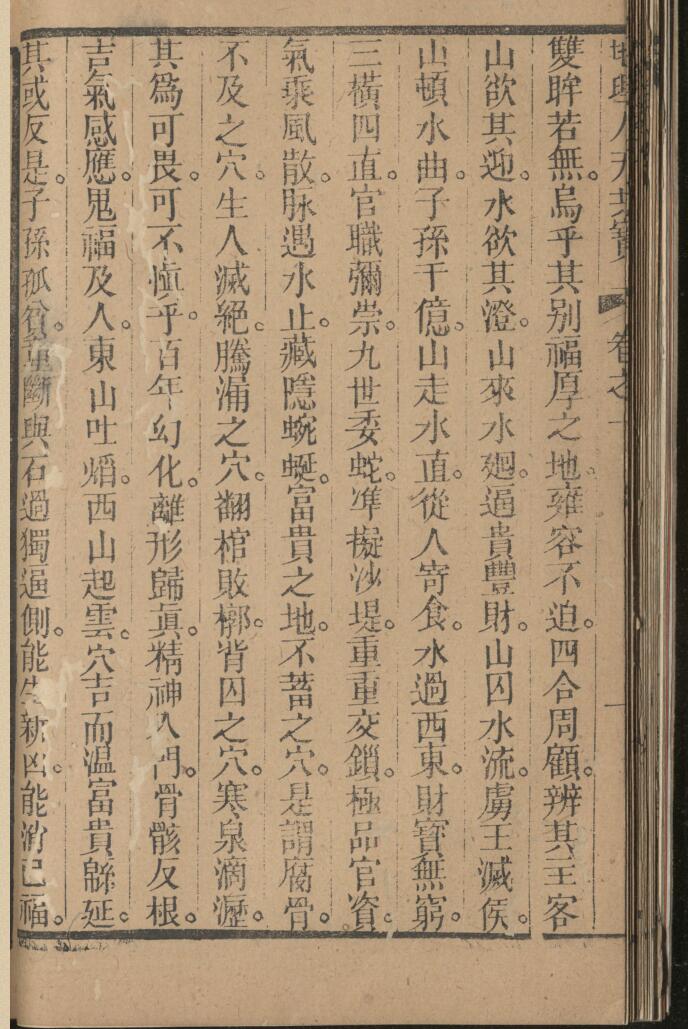 卷之一
雙眸若無。烏乎其別福厚之地。雍容不迫。四合周顧。辨其主客
山欲其迎。水欲其澄。山來水廻。逼貴豐財。山囚水流。虜王滅侯。
山頓水曲。子孫千億。山走水直。從人寄食。水過西東。財寶無窮。
三橫四直。官職彌崇。九世委蛇。準擬沙堤。重重交鎖。極品官資。
氣乘風散。脉遇水止。藏隱蜿蜒。富貴之地。不蓄之穴。是謂腐骨。
不及之穴。生人滅絕。騰漏之穴。翻棺敗槨。背囚之穴。寒泉滴瀝。
其爲可畏。可不愼乎。百年幻化。離形歸眞。精神入門。骨骸反根。
吉氣感應。鬼福及人。東山吐熖。西山起雲。穴吉而温。富貴緜延。
其或反是。子孫孤貧。童斷與石。過獨逼側。能生新凶。能消已福。